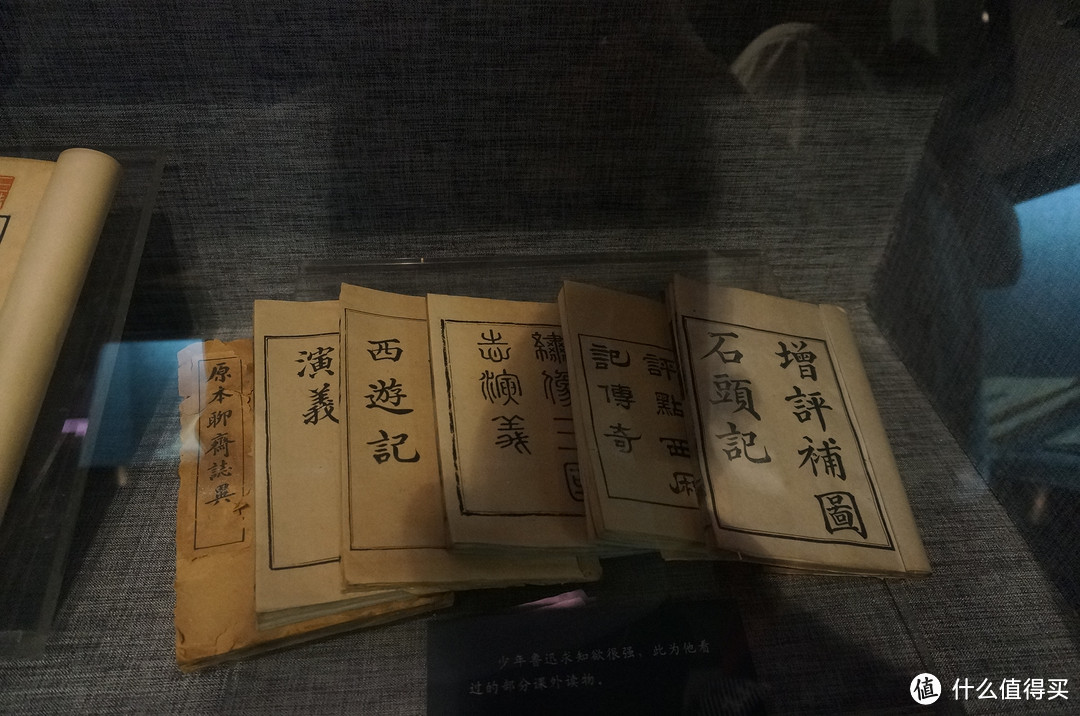 原本聊齋誌異
演義
西遊記
繡像三國
志演義
評點西廂
記傳奇
增評補圖
石頭記
少年鲁迅求知欲很强、此为他看
过的部分课外读物。
值 什么值得买